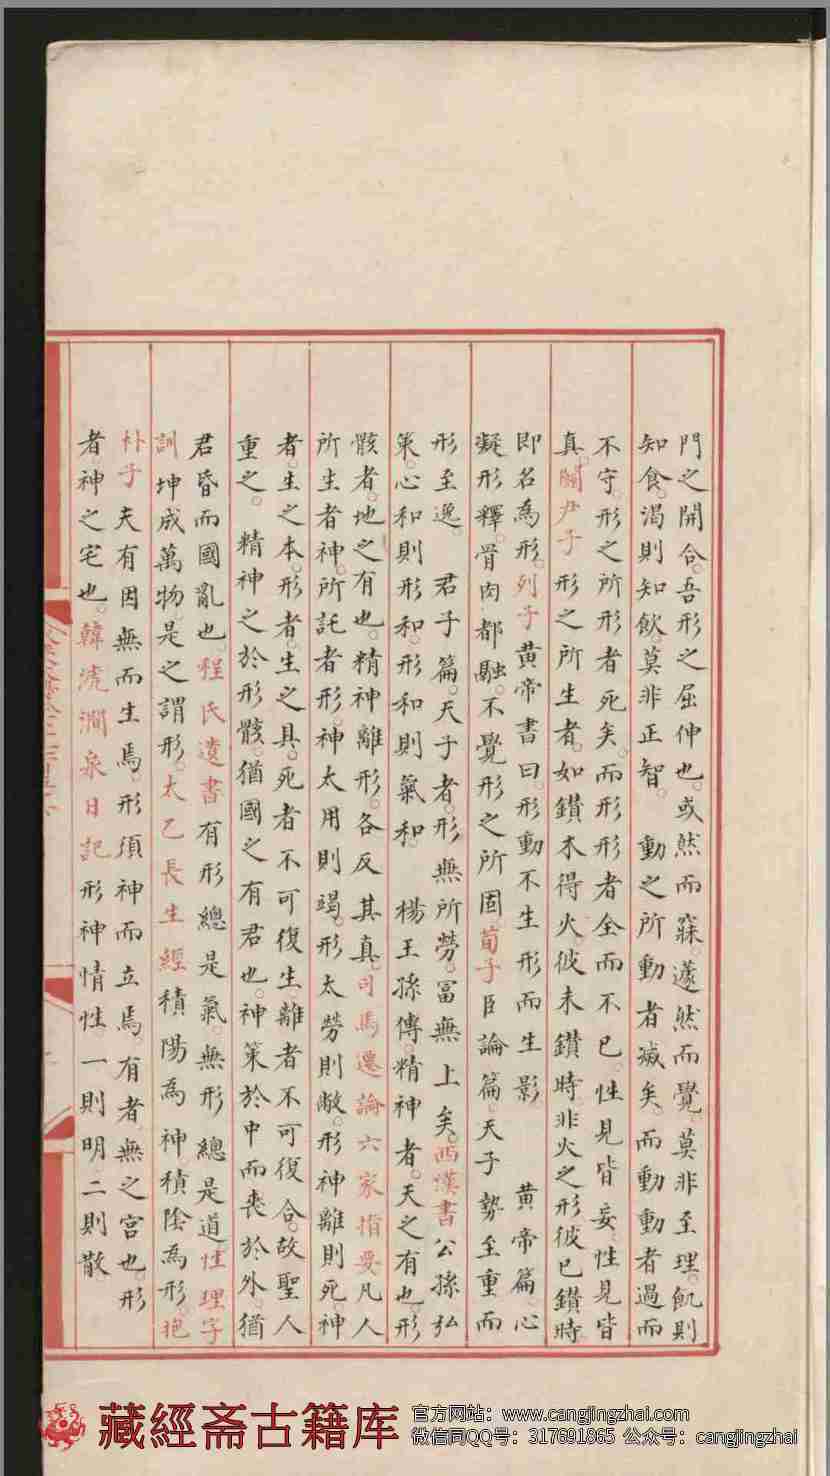 門之開合。吾形之屈伸也。或然而寐。蘧然而覺。莫非至理。飢則
知食。渴則知飲。莫非正智。 動之所動者滅矣。而動動者過而
不守。形之所形者死矣。而形形者全而不已。性見皆妄。性見皆
真。關尹子形之所生者。如鑽木得火。彼未鑽時。非火之形彼已鑽時
即名為形。列子黄帝書曰。形動不生形而生影 黄帝篇。心
凝形釋。骨肉都融。不覺形之所固。荀子臣論篇。天子勢至重而
形至逸。 君子篇。天子者。形無所勞。冨無上矣。西漢書公孫弘
策。心和則形和。形和則氣和。 楊王孫傳精神者。天之有也。形
骸者。地之有也。精神離形。各反其真。司馬遷論六家指要凡人
所生者神。所託者形。神太用則竭。形太勞則敝。形神離則死。神
者。生之本。形者。生之具。死者不可復生。離者不可復合。故聖人
重之。 精神之於形骸。猶國之有君也。神策於中而喪於外。猶
君昏而國亂也。程氏遺書有形總是氣。無形總是道。性理字
訓坤成萬物。是之謂形。太乙長生經積陽為神。積陰為形。抱
朴子夫有因無而生焉。形須神而立焉。有者。無之宫也。形
者。神之宅也。韓淲澗泉日記形神情性。一則明。二則散
藏經斋古籍库
官方网站：www.cangjingzhai.com
微信同QQ号：317691865 公众号：cangjingzhai